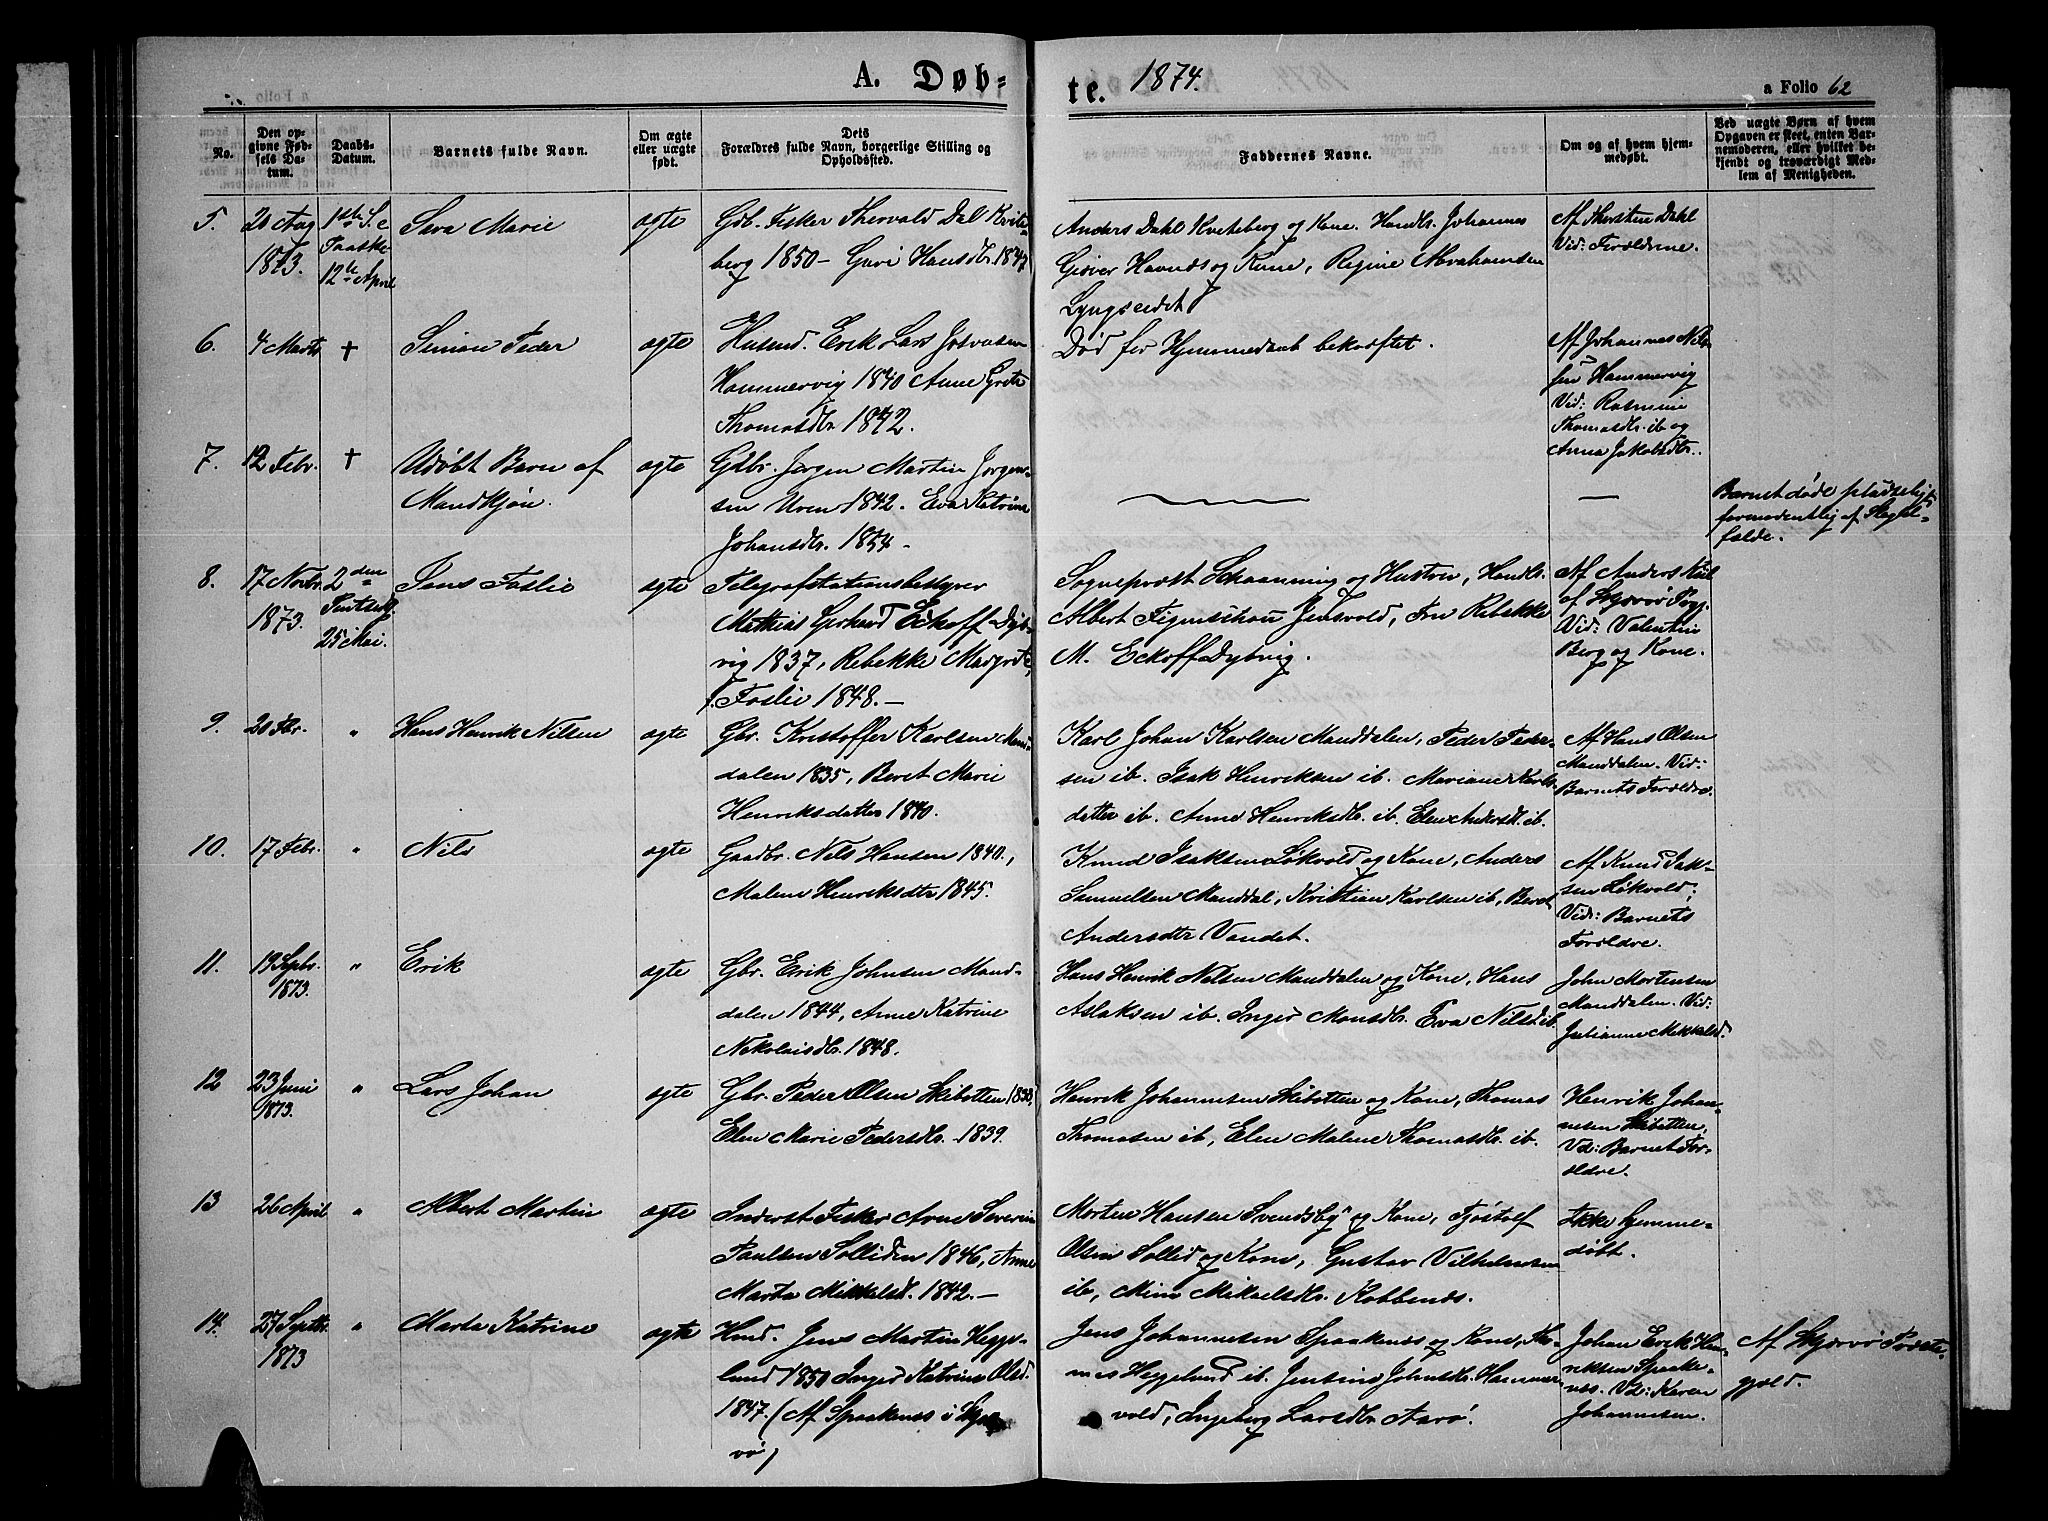 A. Døb=
te. 1874.
a Folio 62
No.
Den op-
givne Fød-
sels Da-
tum.
Daabs-
Datum.
Barnets fulde Navn.
Om ægte
eller uægte
født.
Dets
Forældres fulde Navn, borgerlige Stilling og
Opholdssted.
Faddernes Navne.
Om og af hvem hjem-
medøbt.
Ved uægte Børn af hvem
Opgaven er skeet, enten Bar-
nemoderen, eller hvilket be-
kjendt og troværdigt Med-
lem af Menigheden.
5.
20 Aug
1873.
1ste S. e
Paaske
12te April
Sara Marie
ægte
Gdb. Fisker Thorvald Dal Kvite
berg 1850 - Guri Hansdtr. 1847
Anders Dahl Kviteberg og Kone. Handls. Johannes
Giæver Havnes og Kone, Regine Abrahamsen
Lyngseidet
Af Thorsten Dahl
Vid: Forældrene.
6.
4 Marts
+
Simon Peder
ægte
Husmd. Erik Lars Josvasen
Hammervig 1840 Anne Grete
Thomasdtr 1842.
Død før Hjemmedaab bekræftet.
Af Johannes Nil-
sen Hammervig
Vid: Rasmine
Thomasdtr. ib og
Anna Jakobsdtr.
7.
12 Febr.
+
Udøbt Barn af
Mandkjøn.
ægte
Gdbr. Jørgen Martin Jørgen-
sen Uren 1842. Eva Katrine
Johansdtr. 1854 -
Barnet døde pludselig,
formodentlig af Slag-
fælde.
8.
17 Novbr
1873.
2den
Pintsedg.
25 Mai.
Jens Foslie
ægte
Telegrafstationsbestyrer
Mathias Gerhard Eckoff Dyb-
vig 1837, Rebekke Margrete
Foslie 1848. -
Sogneprest Schaanning og Hustru, Handls.
Albert Figenschou Jensvold, Fru Rebekke
M. Eckoff Dybvig.
Af Anders Kiil
af Skjervø Prgj.
Vid: Valentin
Berg og Kone.
9.
20 Fbr.
"
Hans Henrik Nilsen
ægte
Gbr. Kristoffer Karlsen Mand-
dalen 1835, Beret Marie
Henriksdatter 1840.
Karl Johan Karlsen Manddalen, Peder Peder-
sen ib. Isak Henriksen ib. Mariane Karls-
datter ib. Anne Henriksdtr. ib. Elen Andersdtr. ib.
Af Hans Olsen
Manddalen. Vid:
Barnets Forældre.
10.
17 Febr.
"
Nils
ægte
Gaardbr. Nils Hansen 1840.,
Malene Henriksdtr 1845.
Knud Isaksen Løkvold og Kone, Anders
Samuelsen Manddal, Kristian Karlsen ib, Beret
Andersdtr Vandet.
Af Knud Isak-
sen Løkvold;
Vid: Barnets
Forældre.
11.
19 Sepbr.
1873.
"
Erik
ægte
Gbr. Erik Johnsen Mand-
dalen 1844, Anne Katrine
Nikolaisdtr. 1848.
Hans Henrik Nilsen Manddalen og Kone, Hans
Aslaksen ib. Inger Monsdtr. Eva Nilsd ib.
John Mortensen
Manddalen. Vid:
Julianne Mikkelsd.
12
23 Juni
1873.
"
Lars Johan
ægte
Gbr. Peder Olsen Skibotten 1838,
Elen Marie Pedersdtr. 1839.
Henrik Johannesen Skibotten og Kone, Thomas
Thomasen ib, Elen Malene Thomasdtr. ib.
Henrik Johan-
nesen Skibotten,
Vid: Barnets For-
ældre.
13
26 April
"
Albert Martin
ægte
Inderst Fisker Arne Severin
Paulsen Solliden 1846, Anne
Marta Mikkelsd. 1842. -
Morten Hansen Svendsby og Kone, Tjøstolf
Olsen Sollid og Kone, Gustav Vilhelmsen
ib, Mina Mikaelsdtr. Kobbenes.
Ikke hjemme-
døbt.
14.
27 Septbr.
1873
"
Marta Katrine
ægte
Hmd. Jens Martin Hegge-
lund 1850 Inger Katrine Olsd.
1847. (Af Spaakenes i Skjer
vø)
Jens Johannesen Spaakenes og Kone,
Heggelund ib. Jensine Johnsdtr. Hammer-
vold, Ingeberg Larsdtr Aarø.
Johan Erik Hen-
riksen Spaake-
nes. Vid: Karen
Johannesen.
Af Skjervø Præste-
gjeld.